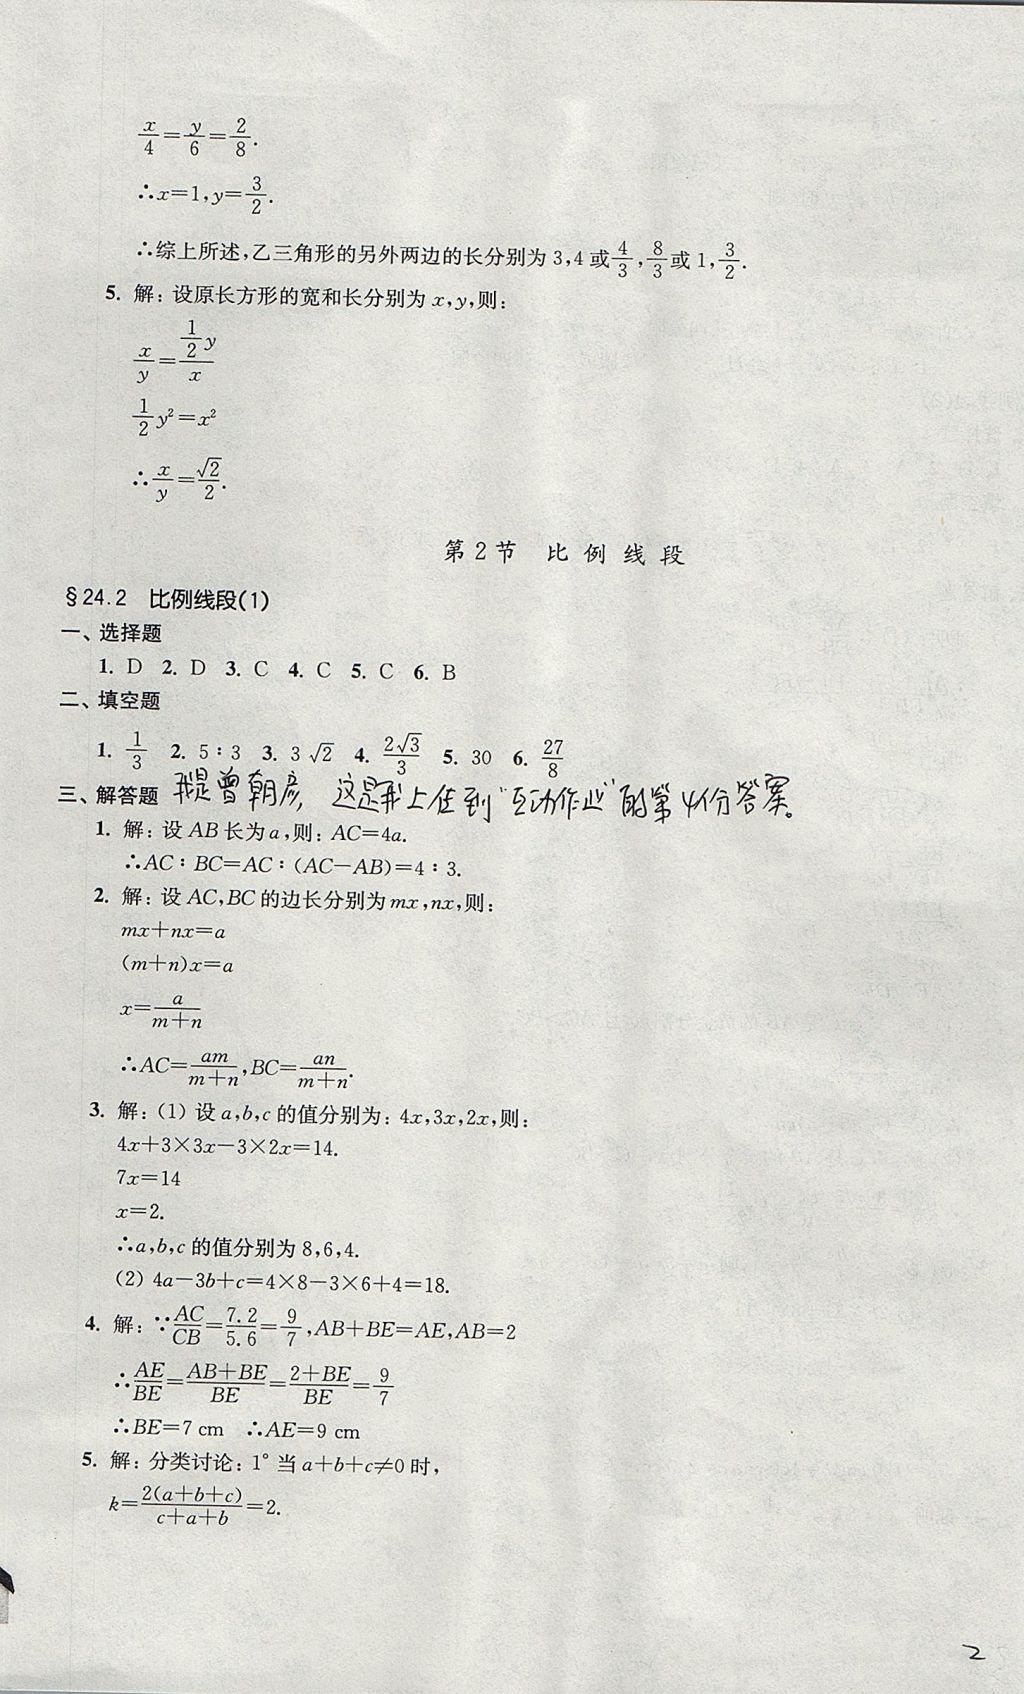 x/4=y/6=2/8.
∴x=1,y=3/2.
∴综上所述,乙三角形的另外两边的长分别为3,4或4/3,8/3或1,3/2.
5. 解:设原长方形的宽和长分别为x,y,则:
x/y=(1/2 y)/x
1/2 y²=x²
∴x/y=√2/2.
第2节 比例线段
§24.2 比例线段(1)
一、选择题
1. D 2. D 3. C 4. C 5. C 6. B
二、填空题
1. 1/3 2. 5∶3 3. 3√2 4. 2√3/3 5. 30 6. 27/8
三、解答题 我是曾朝彦,这是我上传到“互动作业”的第4份答案。
1. 解:设AB长为a,则:AC=4a.
∴AC∶BC=AC∶(AC−AB)=4∶3.
2. 解:设AC,BC的边长分别为mx,nx,则:
mx+nx=a
(m+n)x=a
x=a/(m+n)
∴AC=am/(m+n),BC=an/(m+n).
3. 解:(1) 设a,b,c的值分别为:4x,3x,2x,则:
4x+3×3x−3×2x=14.
7x=14
x=2.
∴a,b,c的值分别为8,6,4.
(2) 4a−3b+c=4×8−3×6+4=18.
4. 解:∵AC/CB=7.2/5.6=9/7,AB+BE=AE,AB=2
∴AE/BE=(AB+BE)/BE=(2+BE)/BE=9/7
∴BE=7 cm ∴AE=9 cm
5. 解:分类讨论:1°当a+b+c≠0时,
k=2(a+b+c)/(c+a+b)=2.
2